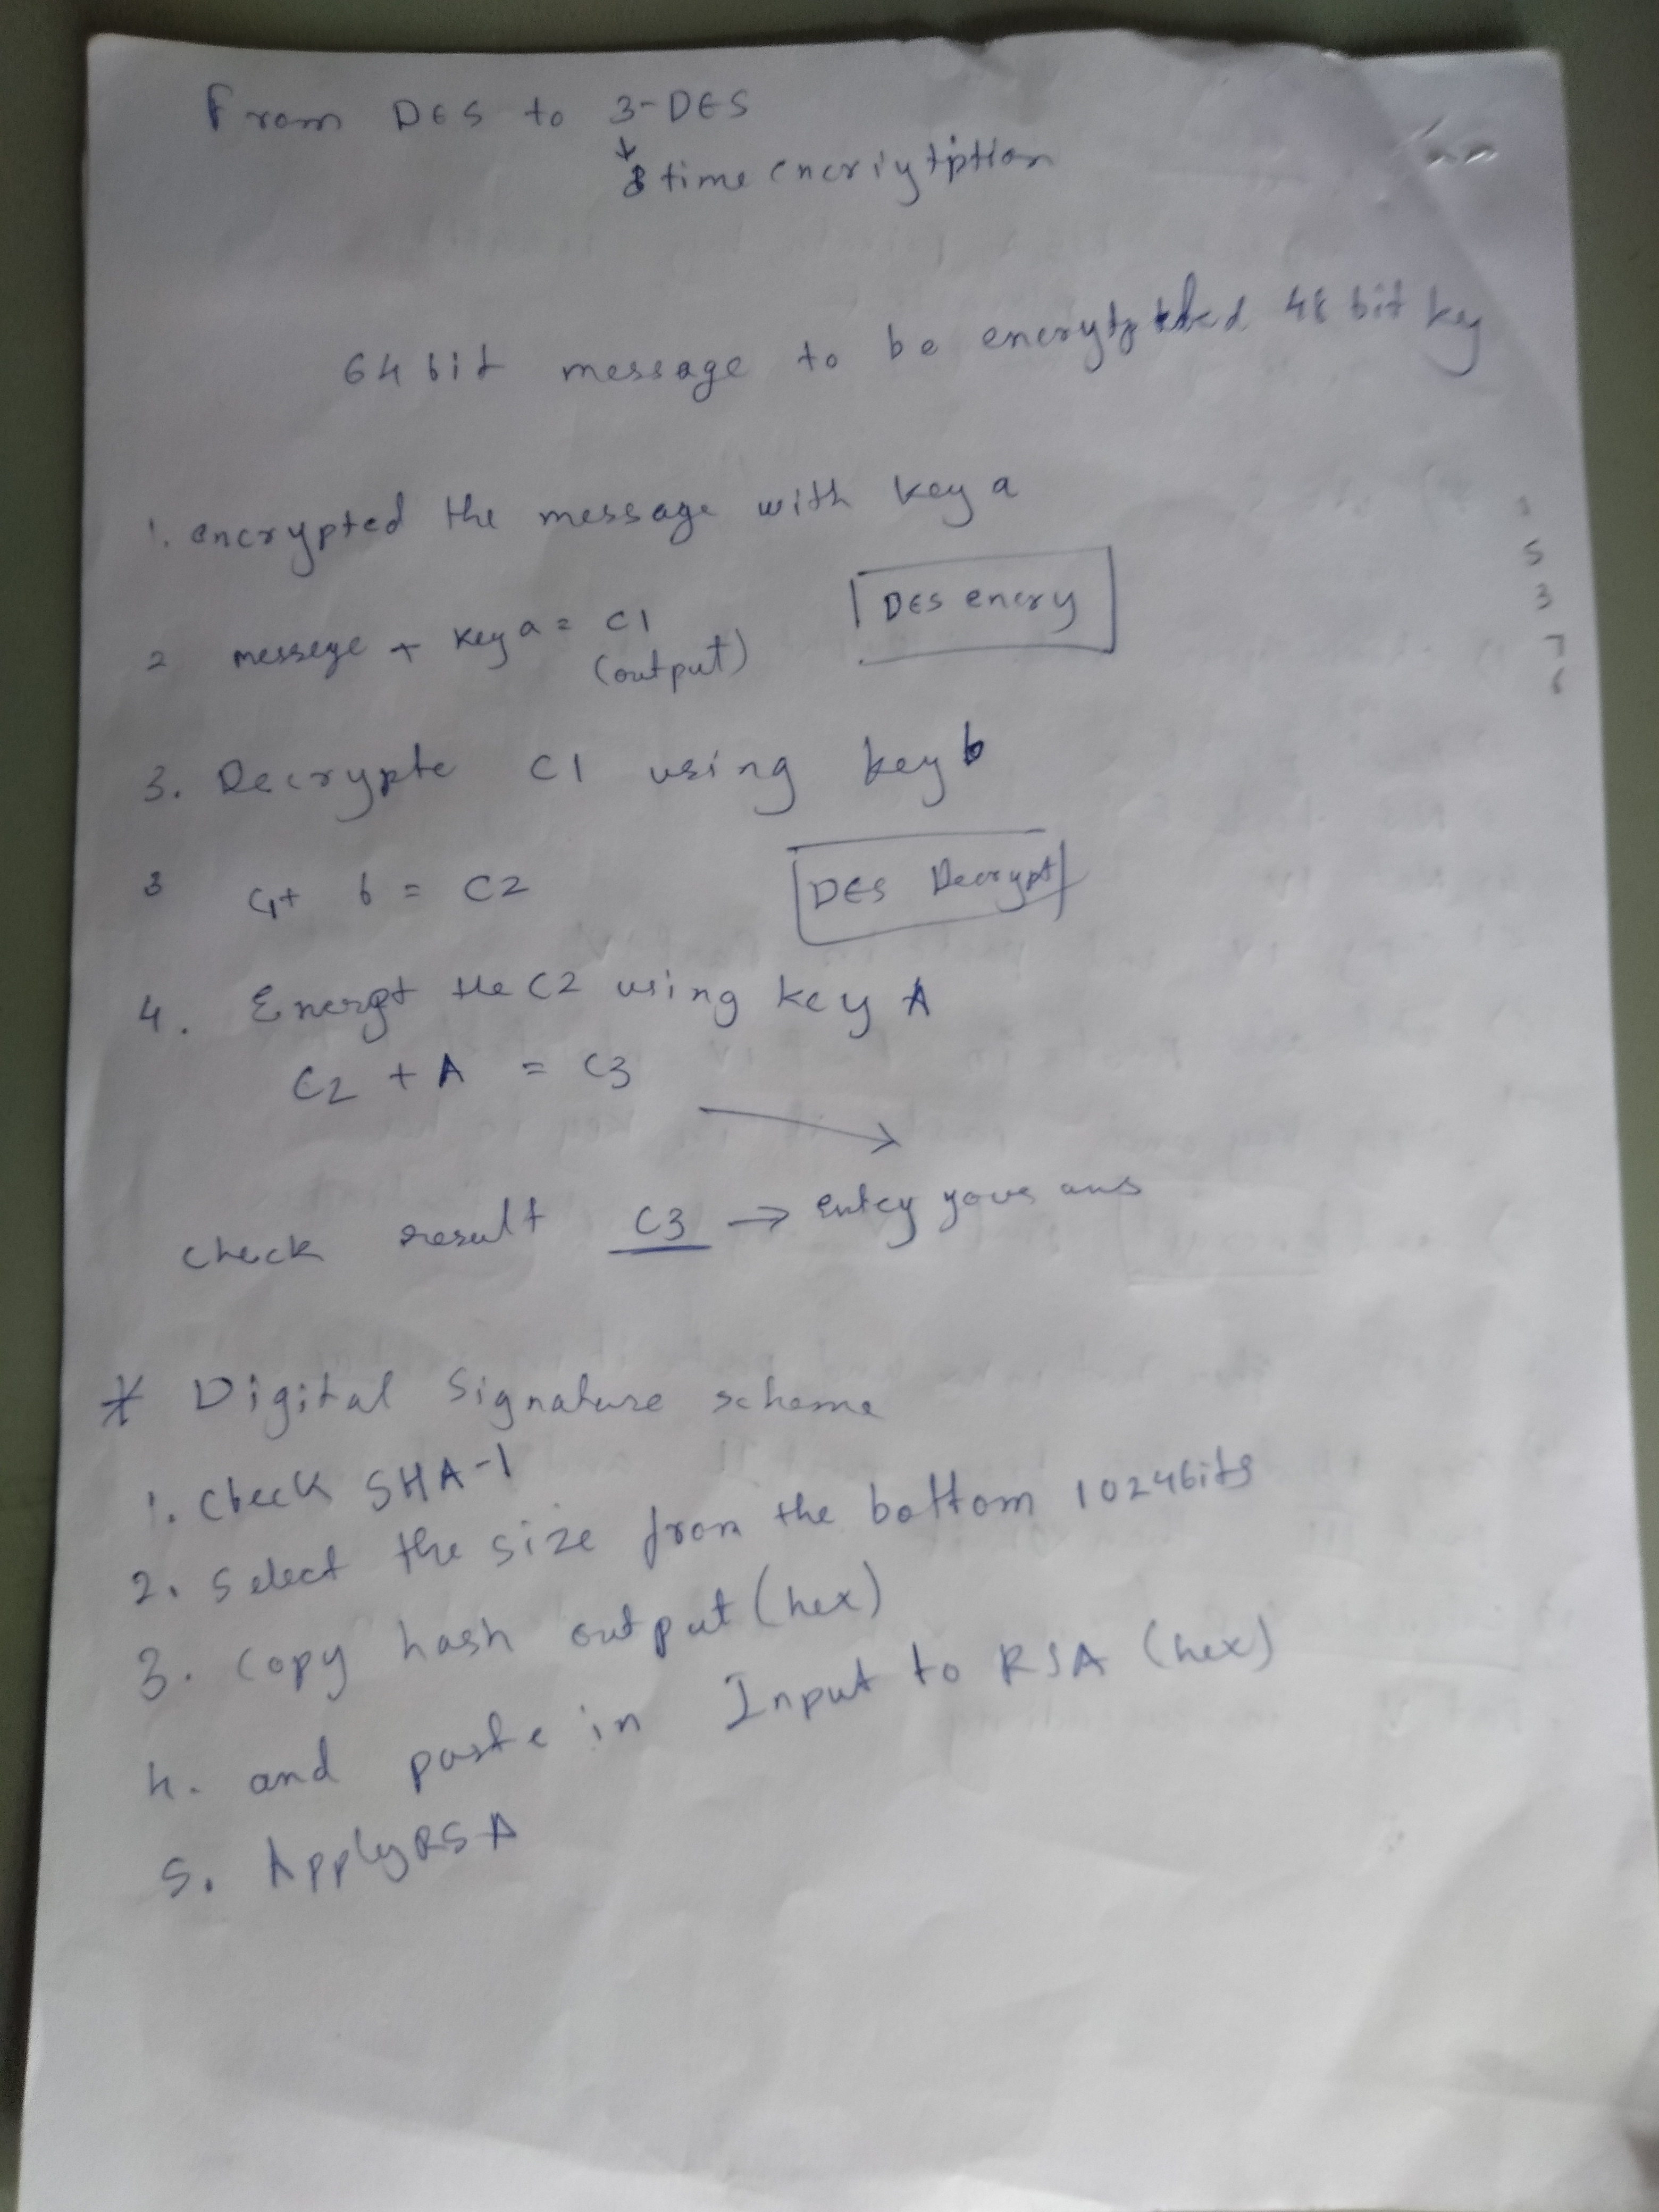 From DES to 3-DES
↓
3 time encriytiption
64 bit message to be encrypted 48 bit key
1. encrypted the message with key a
2 messege + key a = C1
(output)
DES encry
3. Decrypte C1 using key b
3 C1+ b = C2
DES Decrypt
4. Encrypt the C2 using key A
C2 + A = C3
check result C3 → entey your ans
* Digital Signature scheme
1. Check SHA-1
2. Select the size from the bottom 1024bits
3. Copy hash output (hex)
4. and paste in Input to RSA (hex)
5. Apply RSA
5
3
7
6